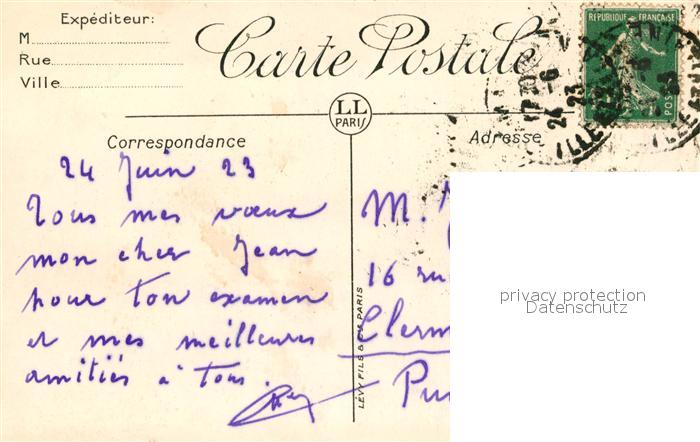 Expéditeur:
M
Rue
Ville
Carte Postale
RÉPUBLIQUE FRANÇAISE
POSTES
LL
PARIS
Correspondance
Adresse
24 Juin 23
Tous mes vœux
mon cher Jean
pour ton examen
et mes meilleures
amitiés à tous.
M.
16 ru
Clerm
Pu
LÉVY FILS & Cie PARIS
17 30
24 - 6
23
privacy protection
Datenschutz